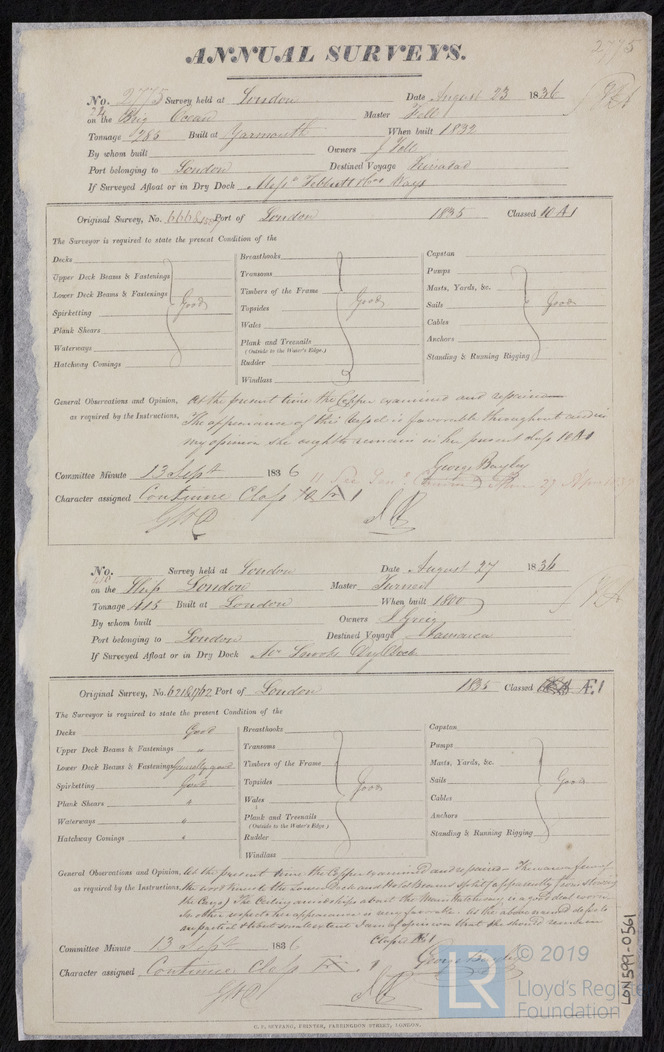 2775
ANNUAL SURVEYS.
No. 2775 Survey held at London Date August 23 1836
on the Brig Ocean Master Fell
Tonnage 285 Built at Yarmouth When built 1832
By whom built Owners J Fell
Port belonging to London Destined Voyage Trinidad
If Surveyed Afloat or in Dry Dock
Original Survey, No. 6668 Port of London 1835 Classed 10 A1
The Surveyor is required to state the present Condition of the
Decks
Upper Deck Beams & Fastenings
Lower Deck Beams & Fastenings
Spirketting
Plank Shears
Waterways
Hatchway Comings
Good
Breasthooks
Transoms
Timbers of the Frame
Topsides
Wales
Plank and Treenails
(Outside to the Water's Edge.)
Rudder
Windlass
Good
Capstan
Pumps
Masts, Yards, &c.
Sails
Cables
Anchors
Standing & Running Rigging
Good
General Observations and Opinion, At the present time the Copper examined and repaired
as required by the Instructions. The appearance of this Vessel is favorable throughout and in
my opinion she ought to remain in her present class 10 A1
George Bayley
Committee Minute 13 Sept 1836
Character assigned Continue Class 10 A 1
No. Survey held at London Date August 27 1836
on the Ship London Master Turner
Tonnage 415 Built at London When built 1800
By whom built Owners
Port belonging to London Destined Voyage Jamaica
If Surveyed Afloat or in Dry Dock Dry Dock
Original Survey, No. Port of London 1835 Classed Æ1
The Surveyor is required to state the present Condition of the
Decks Good
Upper Deck Beams & Fastenings "
Lower Deck Beams & Fastenings generally good
Spirketting Good
Plank Shears "
Waterways "
Hatchway Comings "
Breasthooks
Transoms
Timbers of the Frame
Topsides
Wales
Plank and Treenails
(Outside to the Water's Edge.)
Rudder
Windlass
Good
Capstan
Pumps
Masts, Yards, &c.
Sails
Cables
Anchors
Standing & Running Rigging
Good
General Observations and Opinion, At the present time the Copper examined and repaired There are a few of
as required by the Instructions. the Lower Deck and Hold Beams split apparently from Stowing
the Cargo The Ceiling amidships about the Main Hatchway is a good deal worn
In other respects her appearance is
I am of opinion that she should remain
Class Æ 1
George Bayley
Committee Minute 13 Sept 1836
Character assigned Continue Class Æ 1
LR
© 2019
Lloyd's Register
Foundation
LON599-0561
G. F. SEYFANG, PRINTER, FARRINGDON STREET, LONDON.